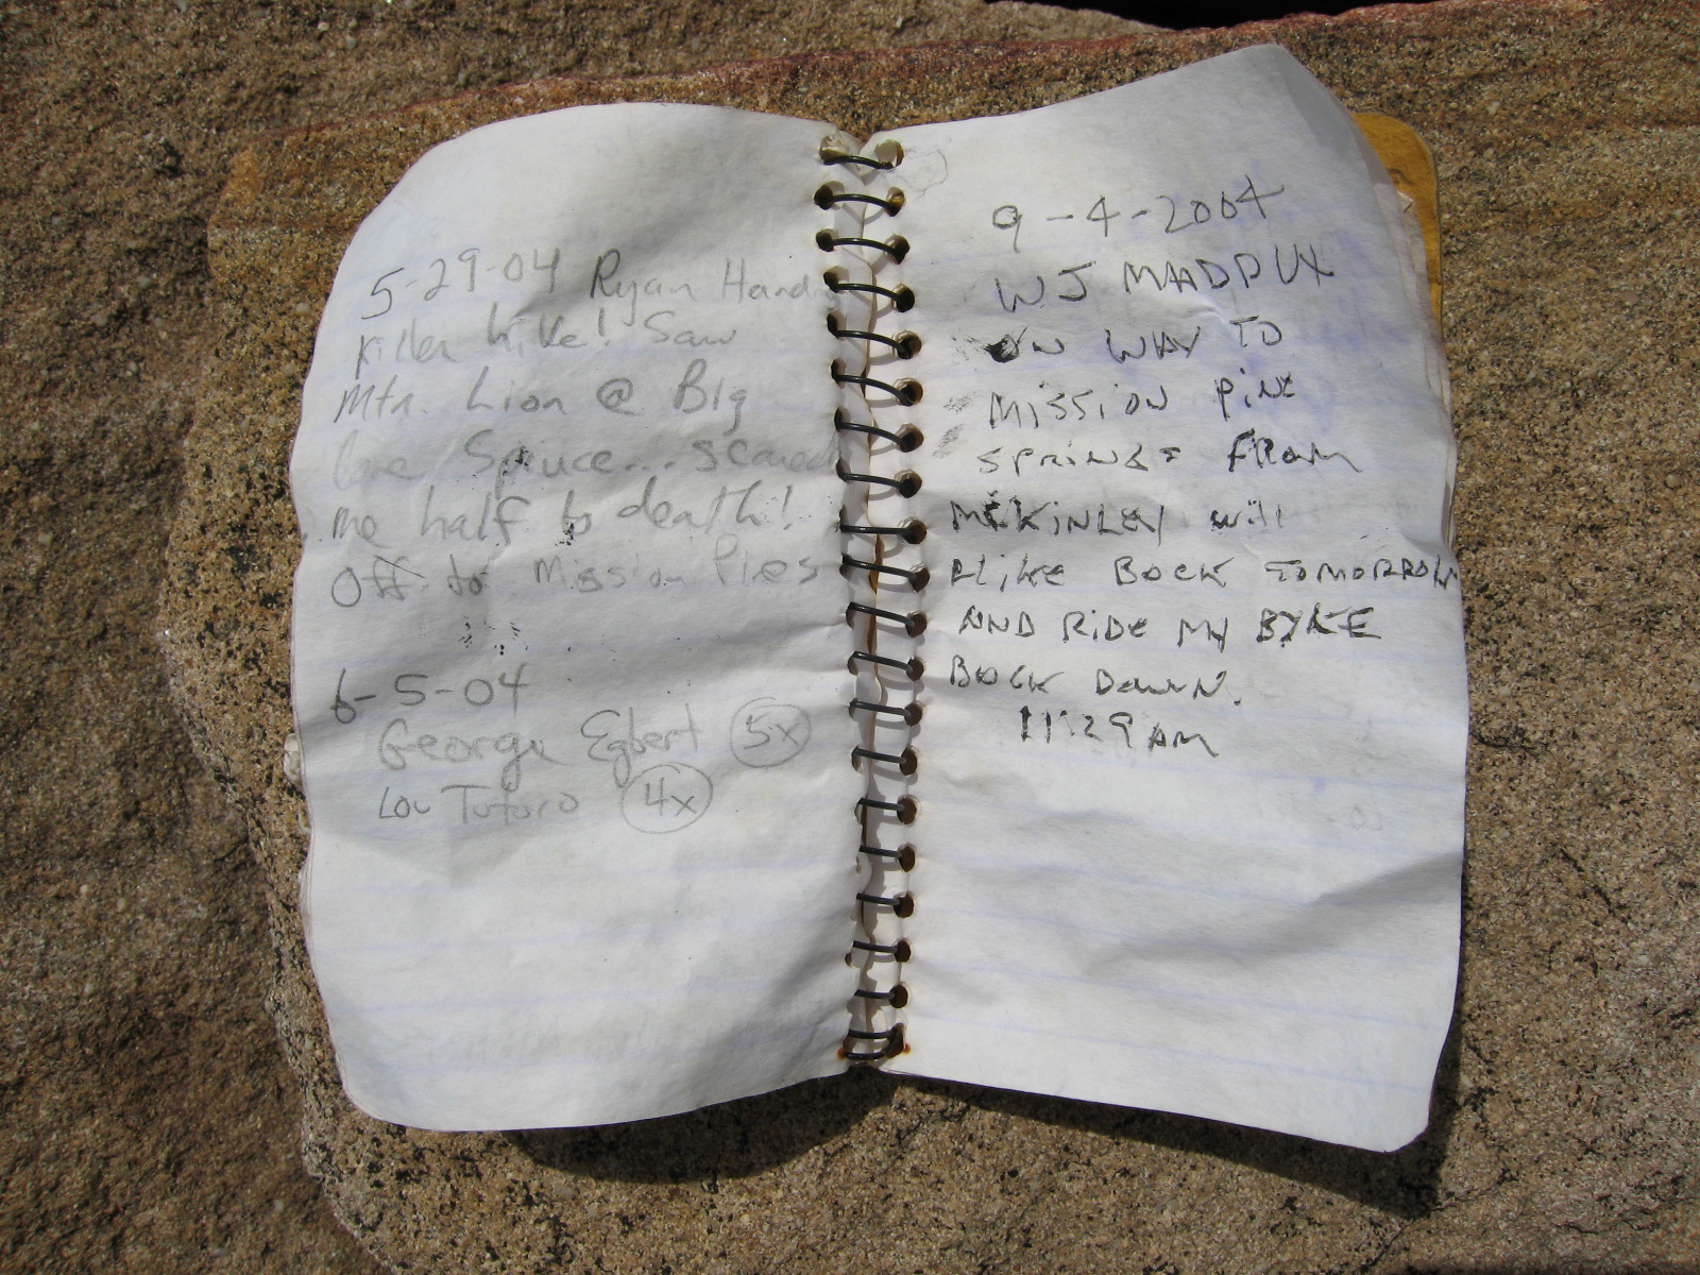 5-29-04 Ryan Hand
Killer hike! Saw
Mtn. Lion @ Big
Cone Spruce... scared
me half to death!
Off to Mission Pies
6-5-04
George Egbert 5x
Lou Tutoro 4x
9-4-2004
WJ MADDUX
ON WAY TO
MISSION PINE
SPRINGS FROM
MCKINLEY will
Hike BOCK TOMORROW
AND RIDE MY BYKE
BOCK DOWN.
11:29 AM